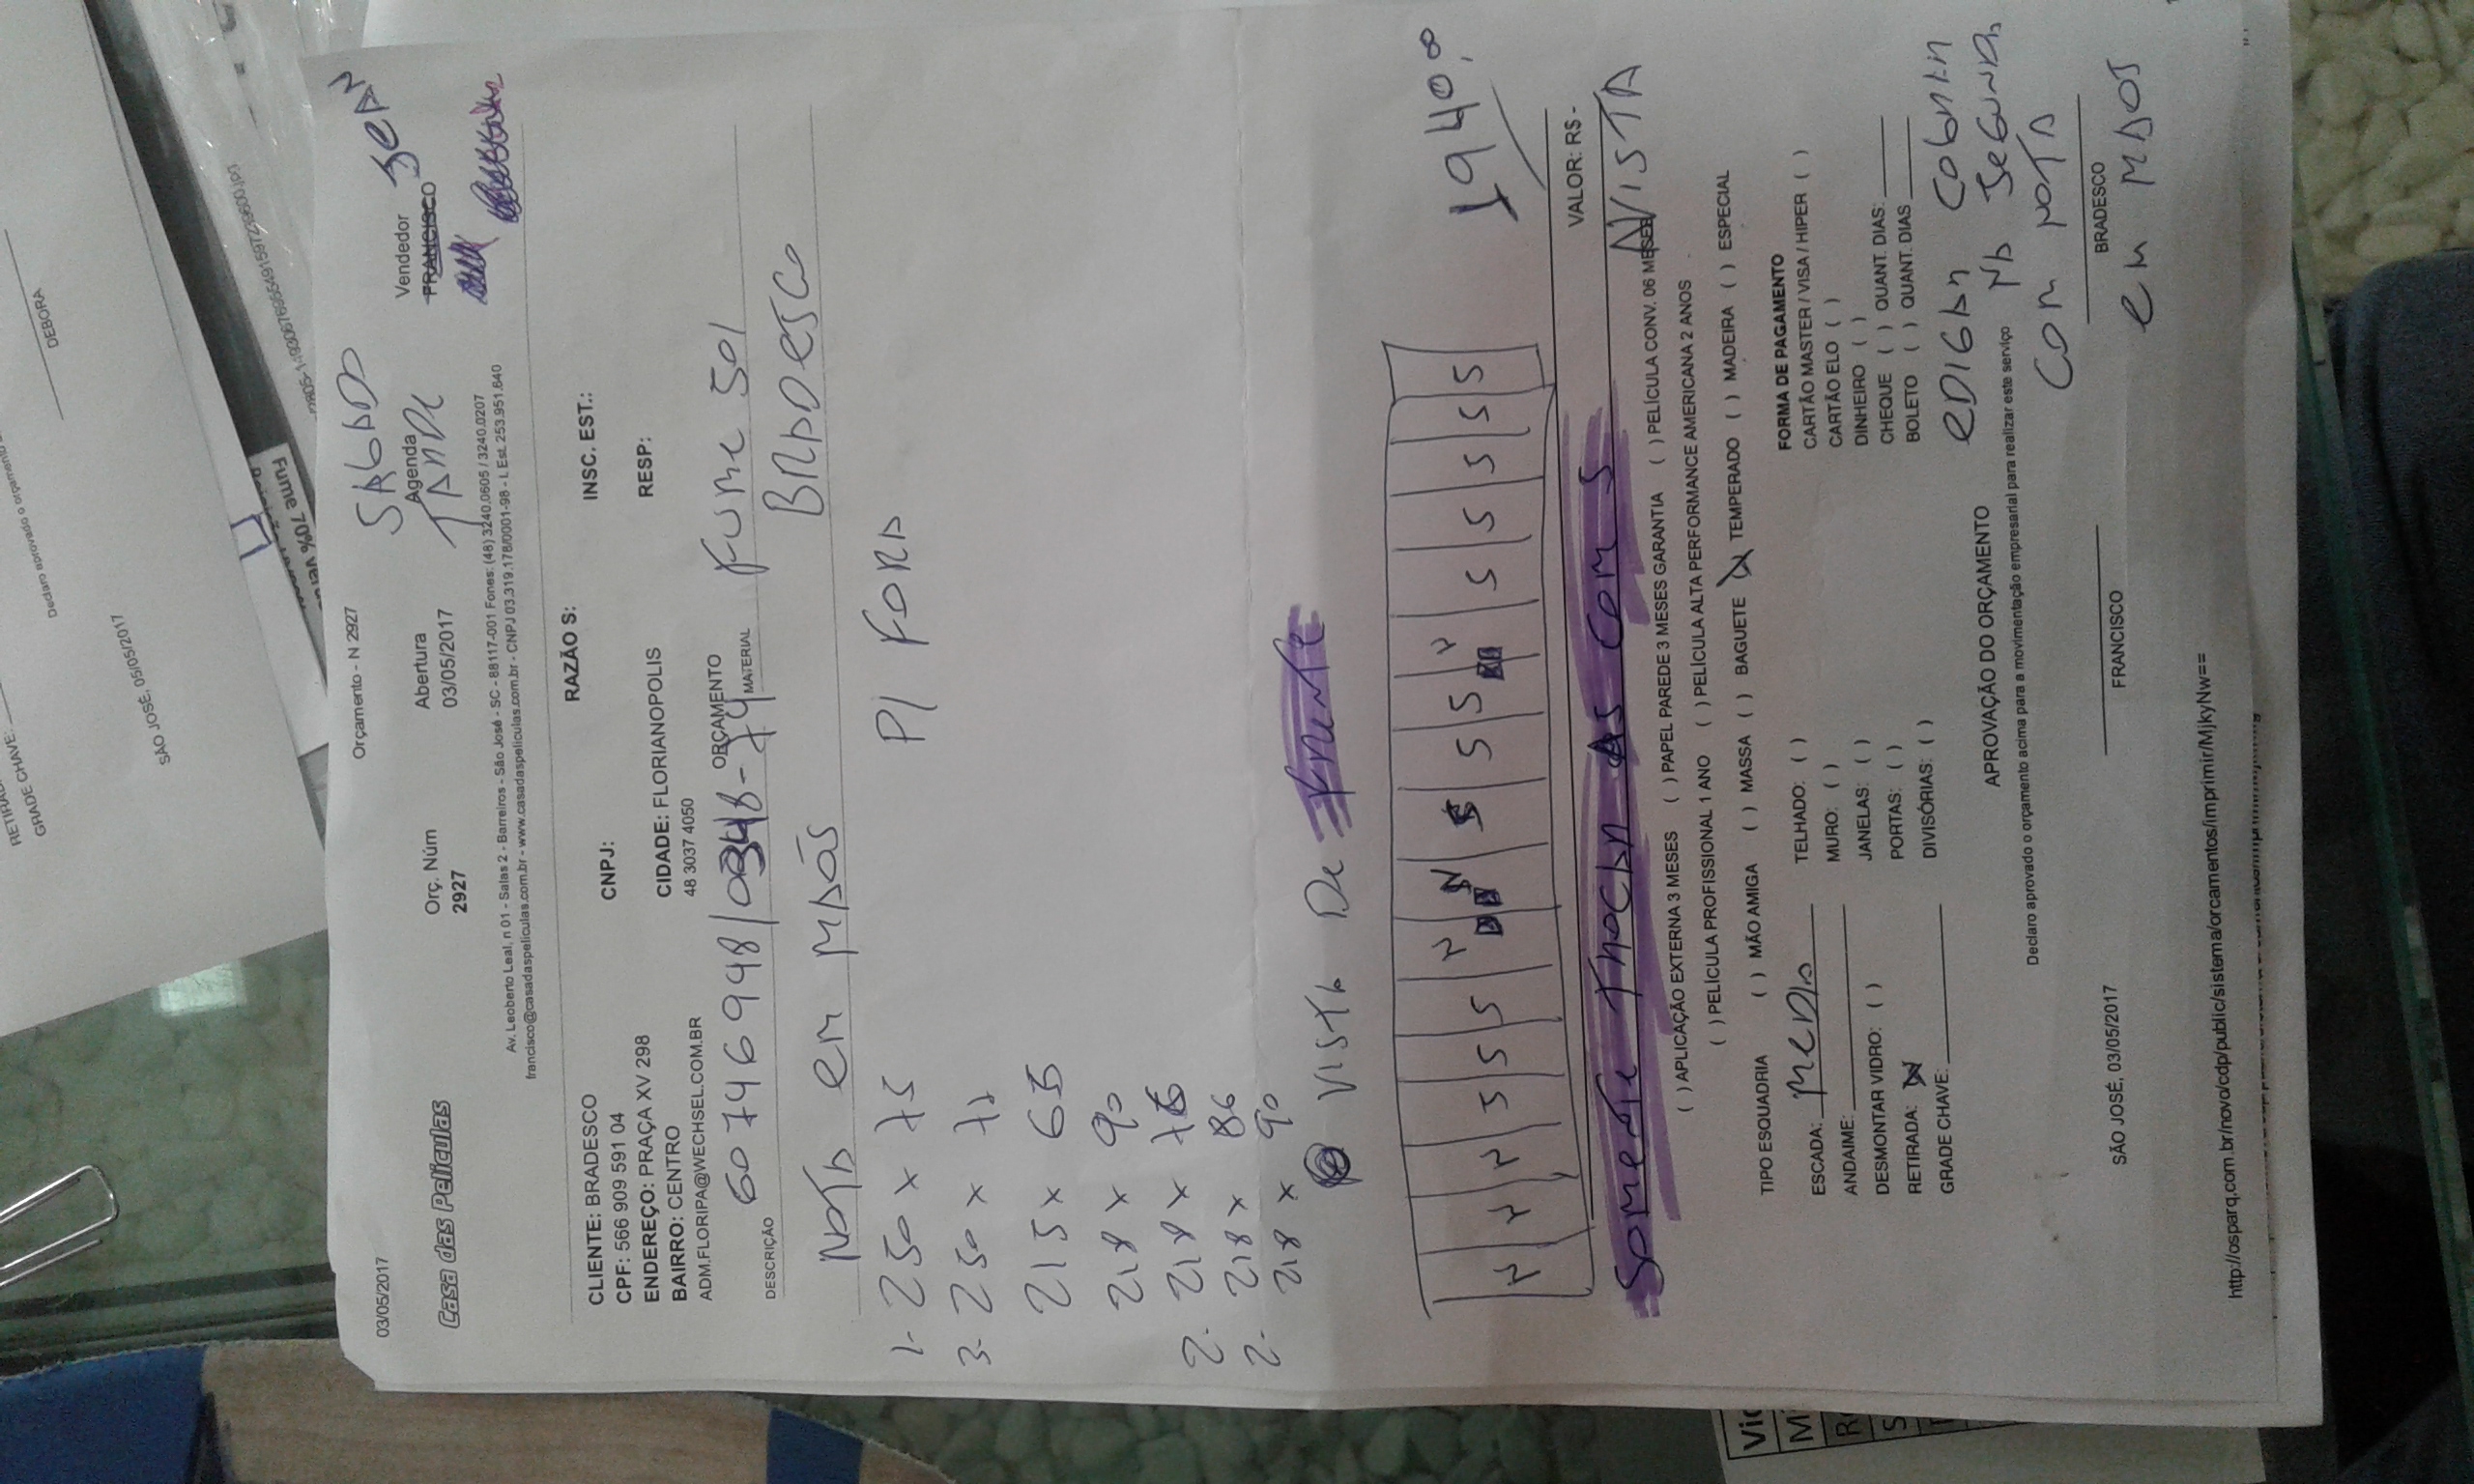 03/05/2017
Orçamento - N 2927
SABADO
Casa das Películas
Orç. Núm
2927
Abertura
03/05/2017
Agenda
TARDE
Vendedor
FRANCISCO
JEAN
Av. Leoberto Leal, n 01 - Salas 2 - Barreiros - São José - SC - 88117-001 Fones: (48) 3240.0605 / 3240.0207
francisco@casadaspeliculas.com.br - www.casadaspeliculas.com.br - CNPJ 03.319.178/0001-98 - I. Est. 253.951.640
CLIENTE: BRADESCO
RAZÃO S:
CPF: 566 909 591 04
CNPJ:
INSC. EST.:
ENDEREÇO: PRAÇA XV 298
BAIRRO: CENTRO
CIDADE: FLORIANOPOLIS
RESP:
ADM.FLORIPA@WECHSEL.COM.BR
48 3037 4050
ORÇAMENTO
60746948/0348-74
DESCRIÇÃO
MATERIAL
Fume 50/
BRADESCO
NOTA em MãOS
P/ FORA
1- 250 x 75
3- 250 x 72
215 x 65
218 x 90
2- 218 x 76
218 x 86
2- 218 x 90
VISTA De Frente
1940,00
N N N S S S N N S S S N S S S S S
VALOR: R$ -
Somente Trocar As Com S
AVISTA
( ) APLICAÇÃO EXTERNA 3 MESES ( ) PAPEL PAREDE 3 MESES GARANTIA ( ) PELÍCULA CONV. 06 MESES
( ) PELÍCULA PROFISSIONAL 1 ANO ( ) PELÍCULA ALTA PERFORMANCE AMERICANA 2 ANOS
TIPO ESQUADRIA ( ) MÃO AMIGA ( ) MASSA ( ) BAGUETE (X) TEMPERADO ( ) MADEIRA ( ) ESPECIAL
ESCADA: MEDIA
TELHADO: ( )
FORMA DE PAGAMENTO
ANDAIME:
MURO: ( )
CARTÃO MASTER / VISA / HIPER ( )
DESMONTAR VIDRO: ( )
JANELAS: ( )
CARTÃO ELO ( )
RETIRADA: (X)
PORTAS: ( )
DINHEIRO ( )
GRADE CHAVE:
DIVISÓRIAS: ( )
CHEQUE ( ) QUANT. DIAS:
BOLETO ( ) QUANT. DIAS
EDIGAR COBRAR
NA Segunda
COM NOTA
em MAOS
APROVAÇÃO DO ORÇAMENTO
Declaro aprovado o orçamento acima para a movimentação empresarial para realizar este serviço
SÃO JOSÉ, 03/05/2017
FRANCISCO
BRADESCO
http://osparq.com.br/novo/cdp/public/sistema/orcamentos/imprimir/MjkyNw==
GRADE CHAVE:
Declaro aprovado o orçamento
SÃO JOSÉ, 05/05/2017
DEBORA